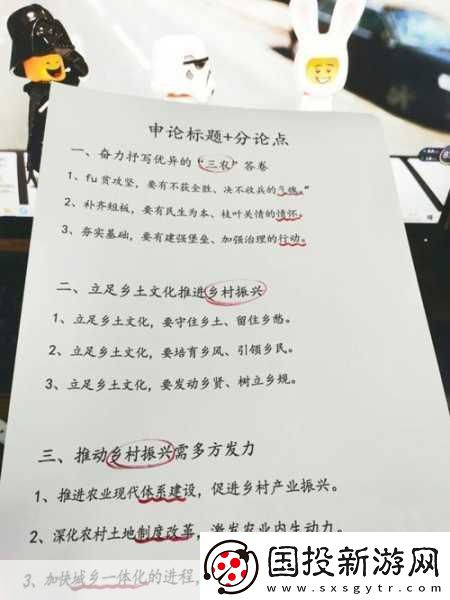 申论标题+分论点
一、奋力抒写优异的“三农”答卷
1、fu贫攻坚，要有不获全胜、决不收兵的气魄。”
2、补齐短板，要有民生为本、枝叶关情的情怀。
3、夯实基础，要有建强堡垒、加强治理的行动。
二、立足乡土文化推进乡村振兴
1、立足乡土文化，要守住乡土、留住乡愁。
2、立足乡土文化，要培育乡风、引领乡民。
3、立足乡土文化，要发动乡贤、树立乡规。
三、推动乡村振兴需多方发力
1、推进农业现代体系建设，促进乡村产业振兴。
2、深化农村土地制度改革，激发农业内生动力。
3、加快城乡一体化的进程，
国投新游网
www.sxsgytr.com